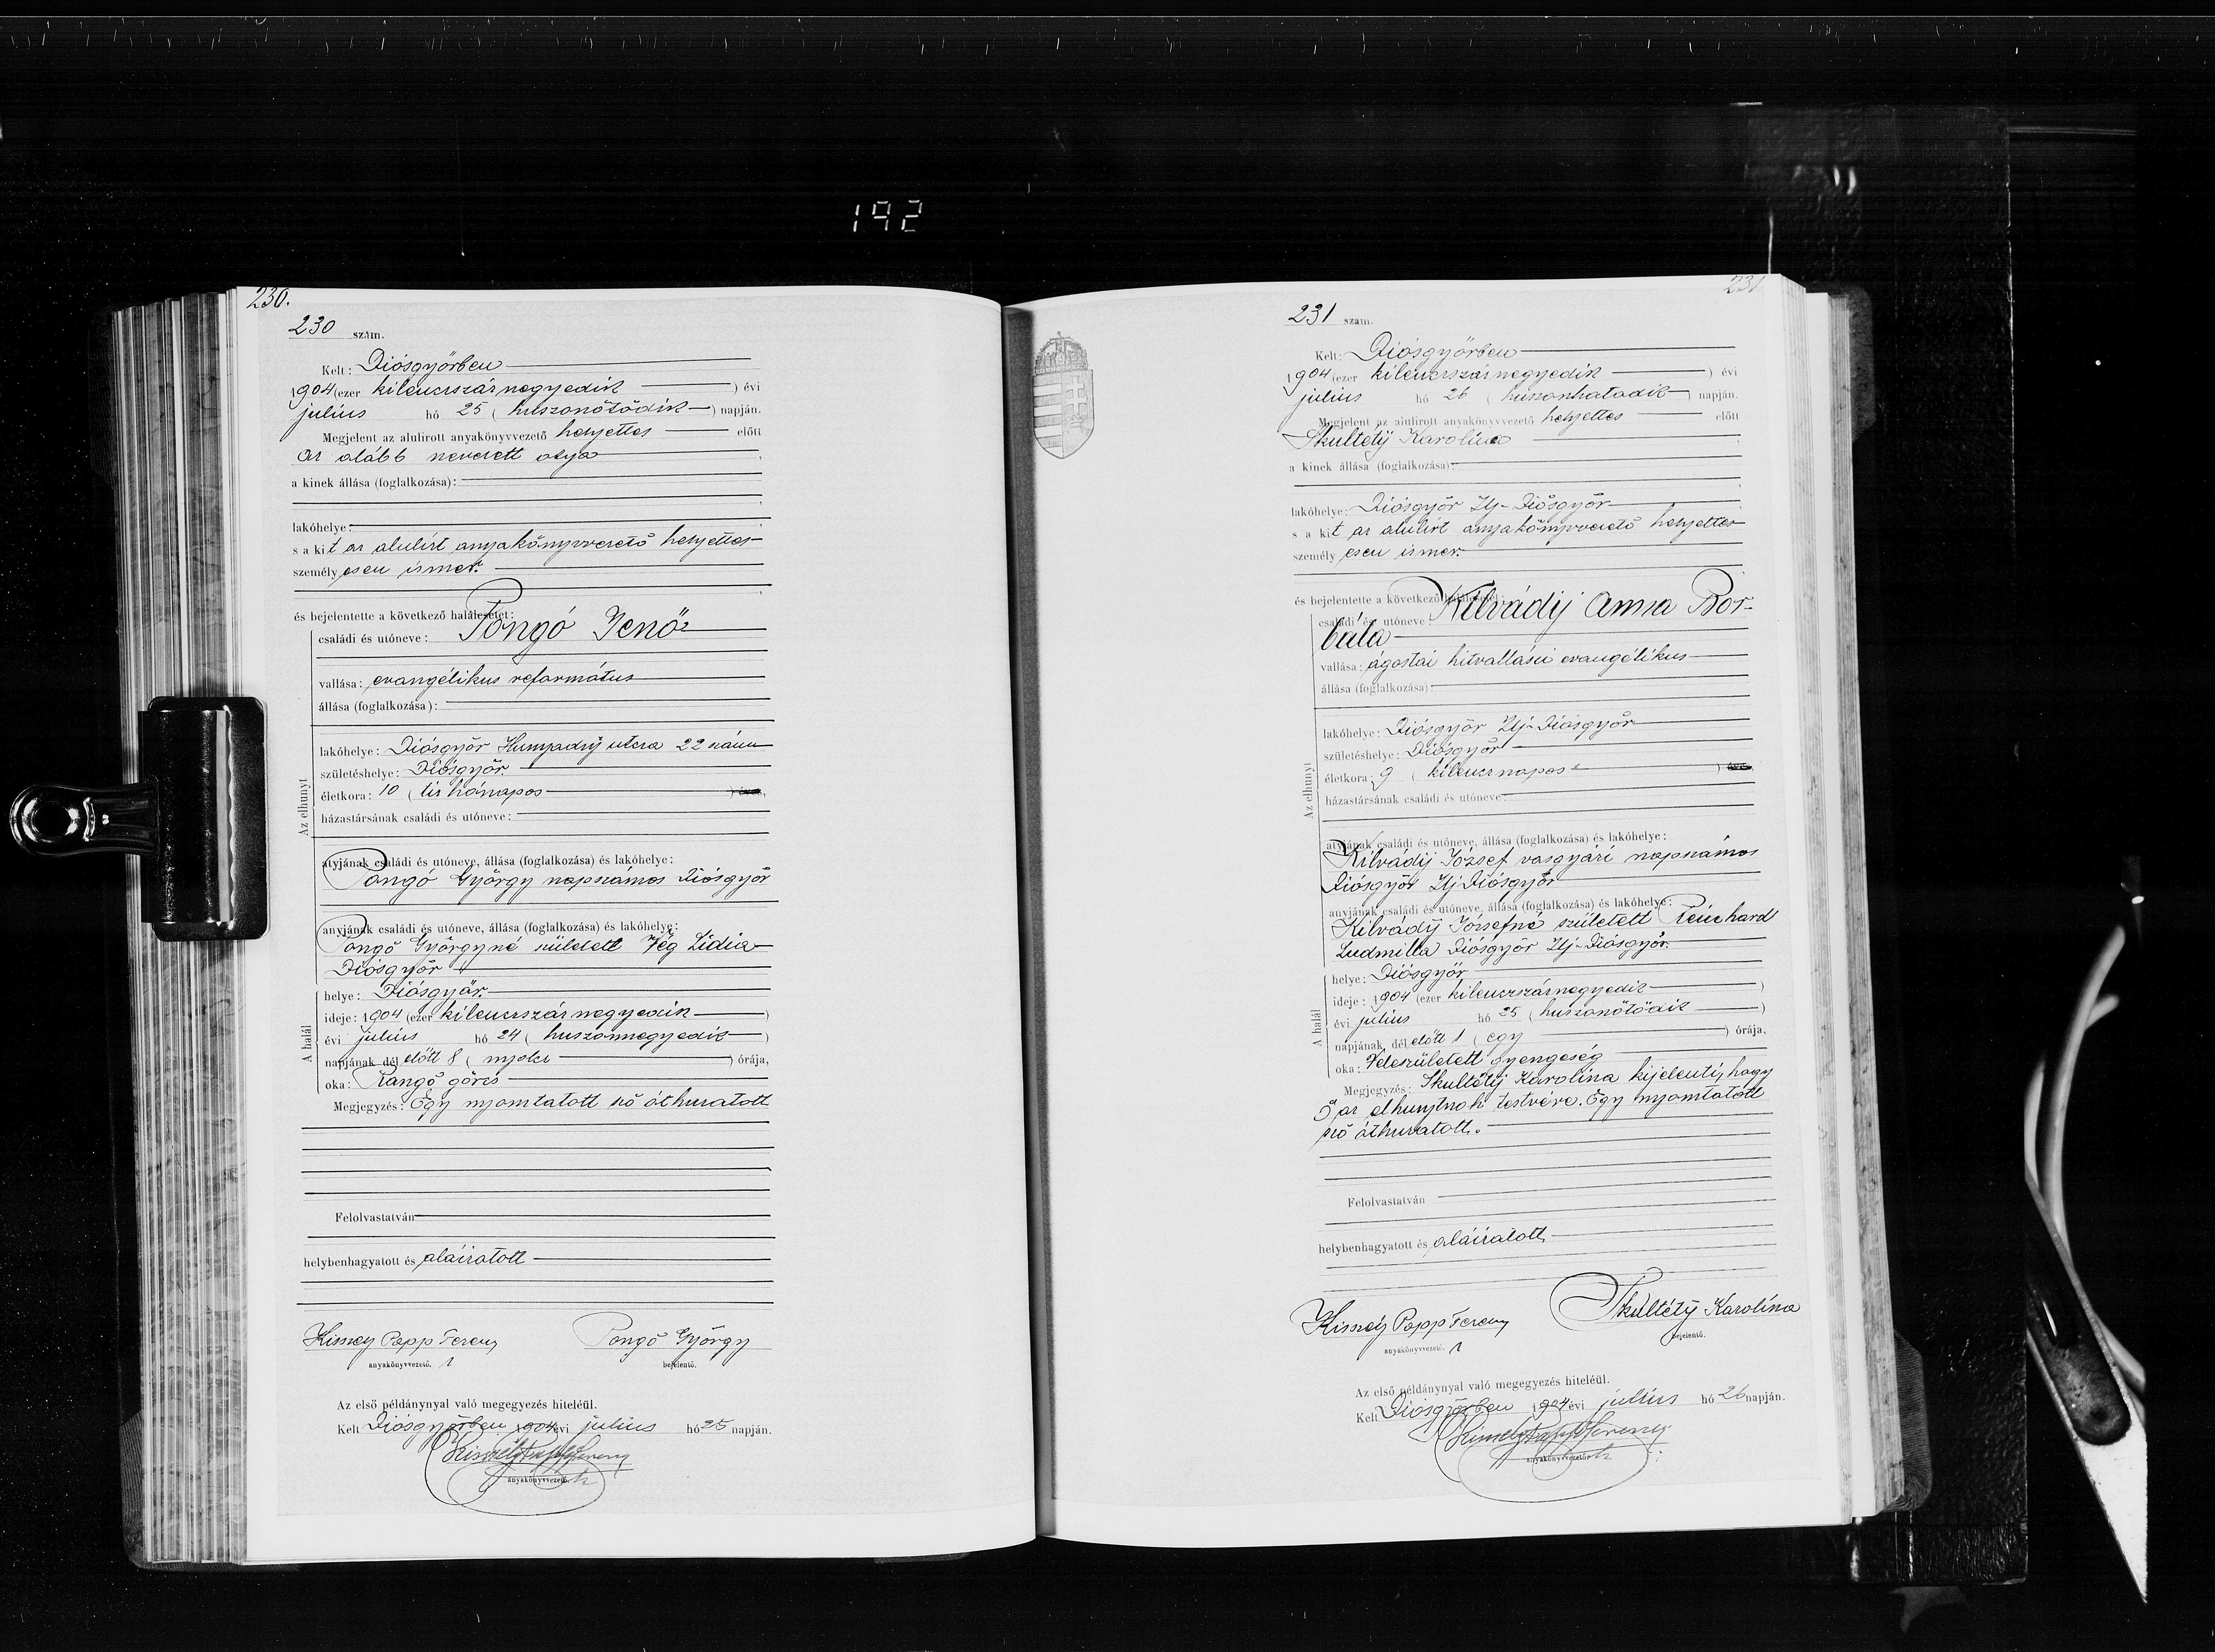 192
230.
230 szám.
Kelt: Diósgyőrben
1904 (ezer kilencszáznegyedik ) évi
julius hó 25 ( huszonötödik ) napján.
Megjelent az alulirott anyakönyvvezető helyettes előtt
az alább nevezett atya
a kinek állása (foglalkozása):
lakóhelye:
s a kit az alulirt anyakönyvvezető helyettes
személyesen ismer.
és bejelentette a következő halálesetet:
családi és utóneve: Pongó Jenő
vallása: evangélikus református
állása (foglalkozása):
Az elhunyt
lakóhelye: Diósgyőr Hunyady utcza 22 szám
születéshelye: Diósgyőr.
életkora: 10 ( tiz hónapos ) éves,
házastársának családi és utóneve:
atyjának családi és utóneve, állása (foglalkozása) és lakóhelye:
Pongó György napszámos Diósgyőr
anyjának családi és utóneve, állása (foglalkozása) és lakóhelye:
Pongó Györgyné született Vég Lidia
Diósgyőr
A halál
helye: Diósgyőr.
ideje: 1904 (ezer kilencszáznegyedik )
évi julius hó 24 ( huszonnegyedik )
napjának délelőtt 8 ( nyolcz ) órája,
oka: Rángó görcs
Megjegyzés: Egy nyomtatott szó áthuzatott
Felolvastatván
helybenhagyatott és aláiratott
Kisszely Papp Ferencz
Pongó György
anyakönyvvezető. h
bejelentő.
Az első példánynyal való megegyezés hiteléül.
Kelt Diósgyőrben 1904 évi julius hó 25 napján.
Kisszely Papp Ferencz
anyakönyvvezető. h
231
231 szám.
Kelt: Diósgyőrben
1904 (ezer kilencszáznegyedik ) évi
julius hó 26 ( huszonhatodik ) napján.
Megjelent az alulirott anyakönyvvezető helyettes előtt
Skultéty Karolina
a kinek állása (foglalkozása):
lakóhelye: Diósgyőr Uj-Diósgyőr
s a kit az alulirt anyakönyvvezető helyettes
személyesen ismer.
és bejelentette a következő halálesetet:
családi és utóneve: Kilvády Anna Bor-
bála
vallása: ágostai hitvallásu evangélikus
állása (foglalkozása):
Az elhunyt
lakóhelye: Diósgyőr Uj-Diósgyőr
születéshelye: Diósgyőr
életkora: 9 ( kilencz napos ) éves,
házastársának családi és utóneve:
atyjának családi és utóneve, állása (foglalkozása) és lakóhelye:
Kilvády József vasgyári napszámos
Diósgyőr Uj Diósgyőr
anyjának családi és utóneve, állása (foglalkozása) és lakóhelye:
Kilvády Józsefné született Reinhard
Ludmilla Diósgyőr Uj-Diósgyőr.
A halál
helye: Diósgyőr
ideje: 1904 (ezer kilencszáznegyedik )
évi julius hó 25 ( huszonötödik )
napjának, délelőtt 1 ( egy ) órája,
oka: Veleszületett gyengeség
Megjegyzés: Skultéty Karolina kijelenti, hogy
ő az elhunytnak testvére. Egy nyomtatott
szó áthuzatott.
Felolvastatván
helybenhagyatott és aláiratott,
Kisszely Papp Ferencz
Skultéty Karolina
anyakönyvvezető. h
bejelentő.
Az első példánynyal való megegyezés hiteléül.
Kelt Diósgyőrben 1904 évi julius hó 26 napján.
Kisszely Papp Ferencz
anyakönyvvezető h